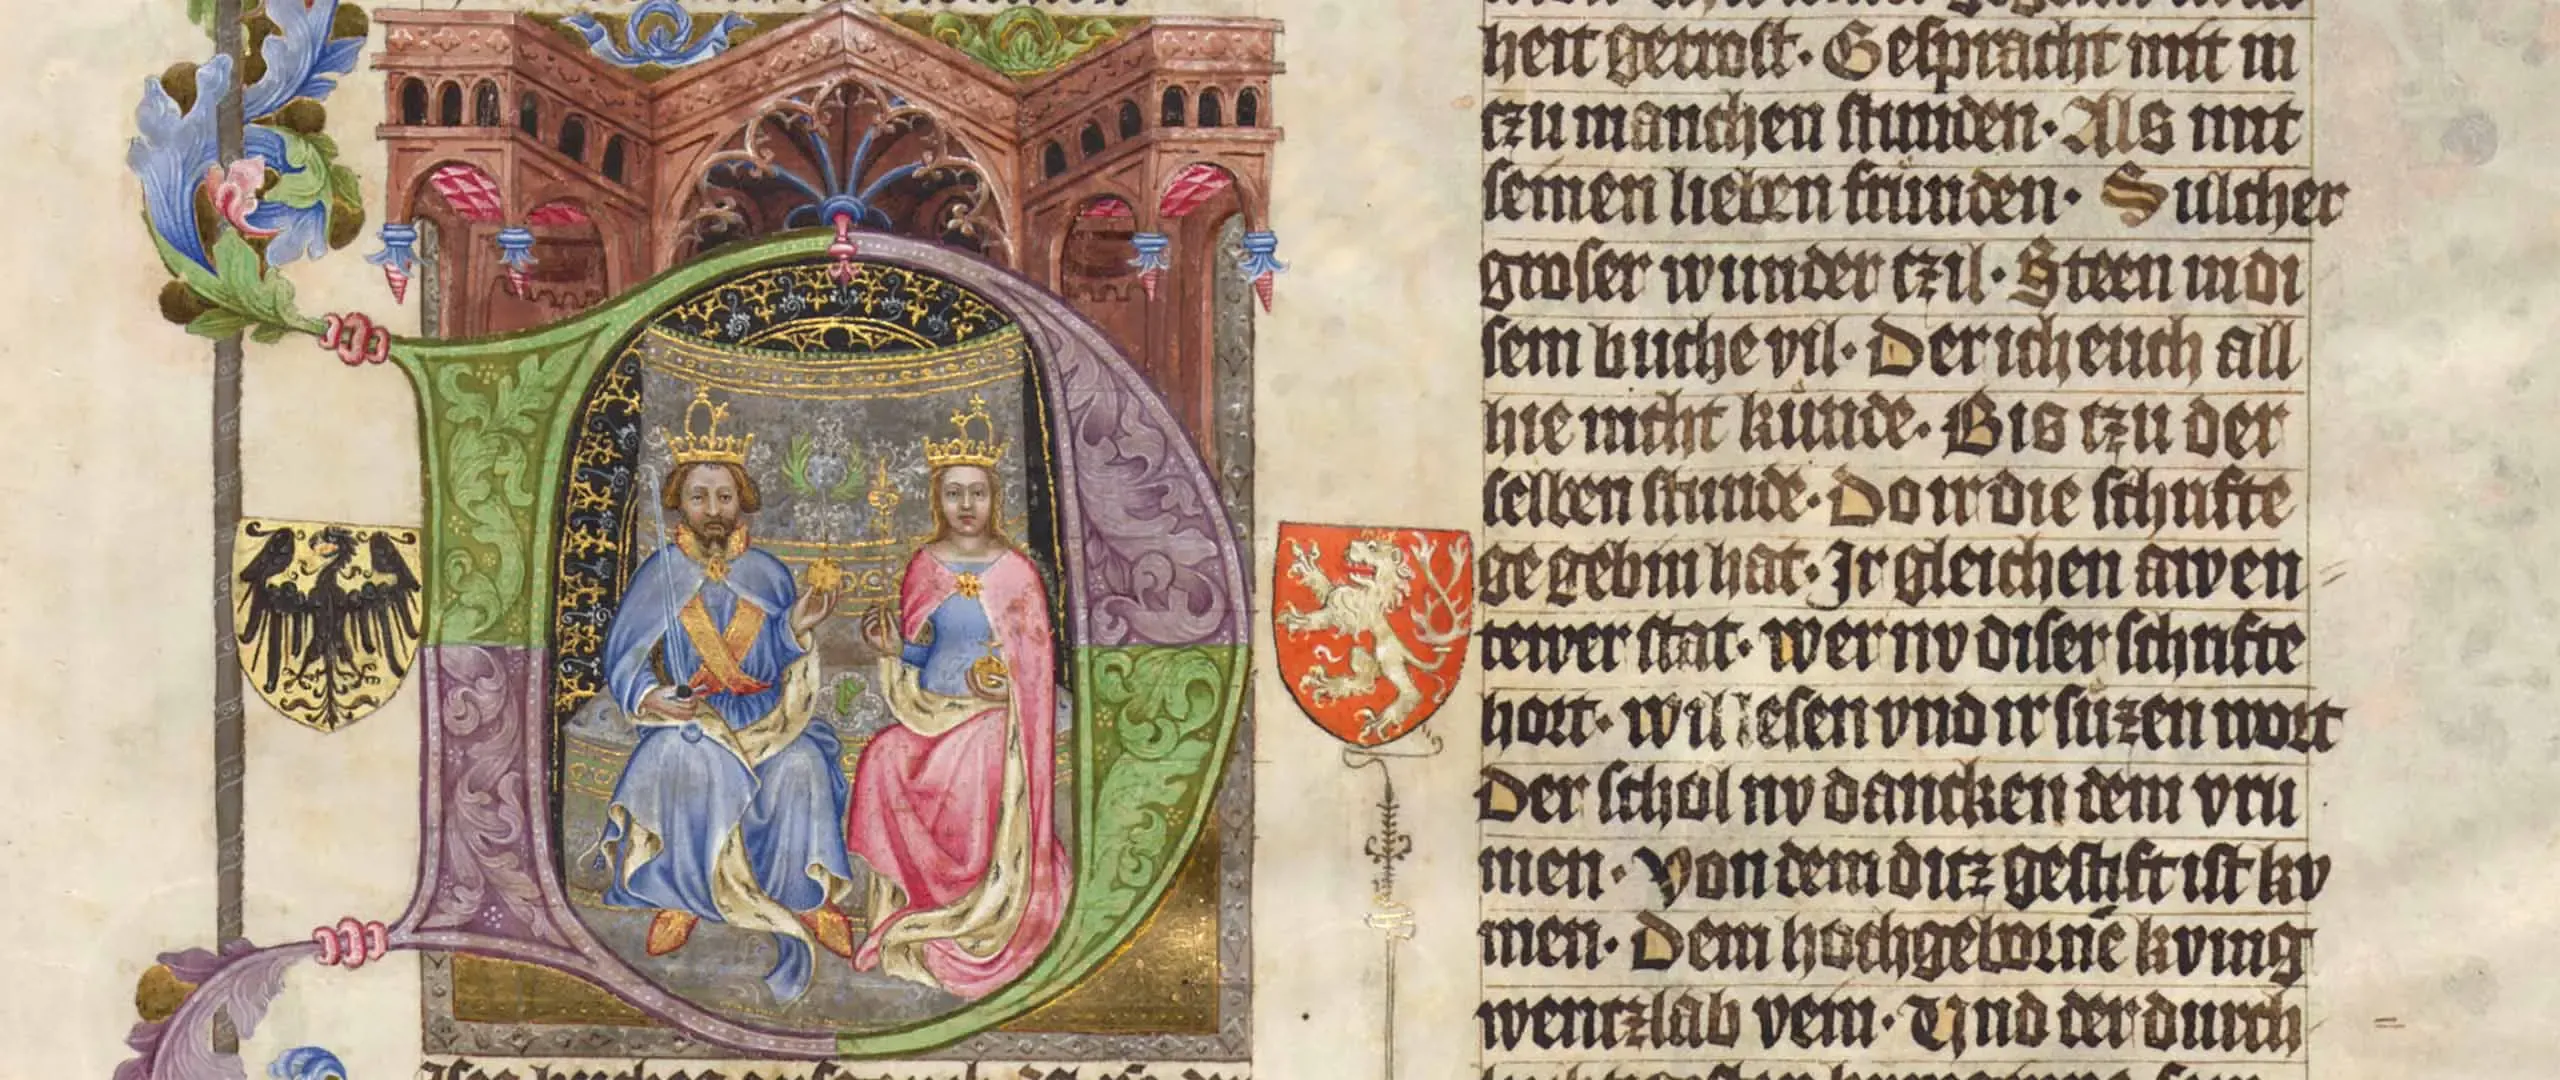 heit getrost. Gespracht mit in
tzu manchen stunden. Als mit
seinen lieben frúnden. Sulcher
groser wunder tzil. Steen in di
sem buche vil. Der ich euch all
hie nicht kúnde. Bis tzu der
selben stunde. Do ir die schrifte
ge gebin hat. Ir gleichen awen
tewer stat. wer nv diser schrifte
hort. wil lesen vnd ir súzen wort
Der schol nv dancken dem vru
men. Von dem ditz gestift ist kv
men. Dem hochgeborne kving
wentzlab vem. Und der durch